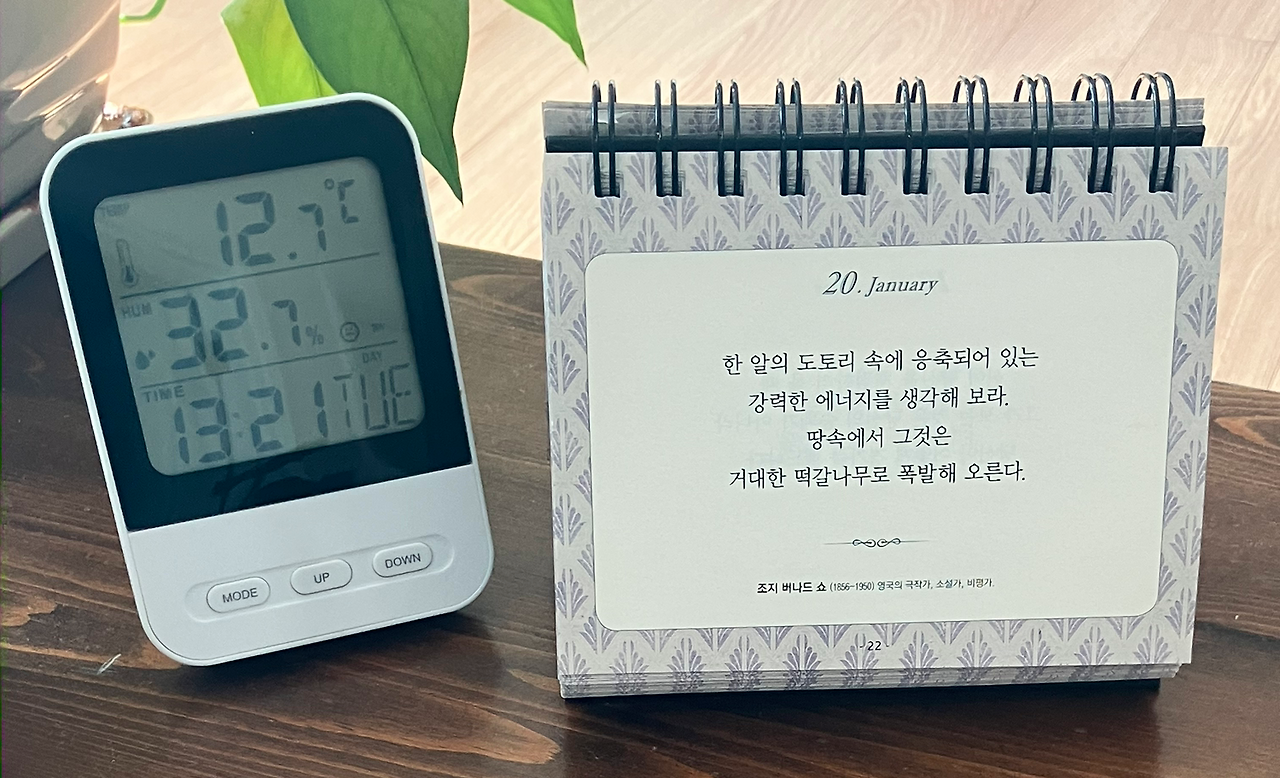 12.7 °C
HUM
32.7 %
DAY
TIME
13:21 TUE
MODE
UP
DOWN
20. January
한 알의 도토리 속에 응축되어 있는
강력한 에너지를 생각해 보라.
땅속에서 그것은
거대한 떡갈나무로 폭발해 오른다.
조지 버나드 쇼 (1856-1950) 영국의 극작가, 소설가, 비평가.
- 22 -